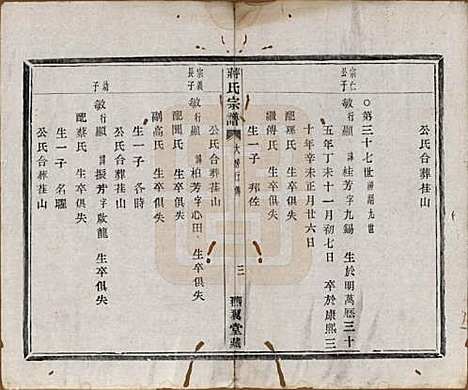 公氏合葬荏山
○第三十七世
宗仁公子
敏行顯諱桂芳字九錫 生於明萬曆三十
五年丁未十一月初七日 卒於康熙三
十年辛未正月廿六日
配璭氏
繼傅氏 生卒俱失
生一子 邦佐
公氏合葬荏山
蔣氏宗譜
大房行傳
三
燕翼堂藏
宗義長子
敏行顯諱柏芳字心田 生卒俱失
配閔氏
副高氏 生卒俱失
生一子 各時
公氏合葬荏山
敏行顯諱振芳字啟龍 生卒俱失
配蔡氏 生卒俱失
生一子 名曜
公氏合葬荏山